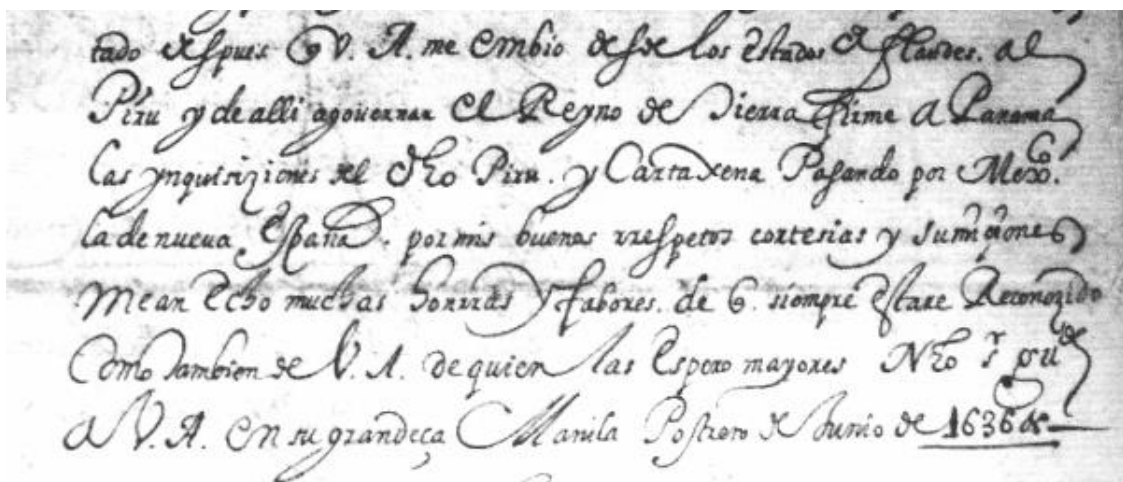 tado despues q V. A. me embio desde los estados de flandes. al
Piru y de alli agouernar el Reyno de Tierra firme a Panama
las ynquisiziones del dho Piru. y Cartaxena Pasando por Mexco.
la de nueua España. por mis buenos rrespetos cortesias y sumisiones
me an echo muchas honrras y fabores. de q. siempre estare Reconozido
como tambien de V. A. de quien las espero mayores Nro sr gude
a V. A. en su grandeça Manila Postrero de Junio de 1636 as